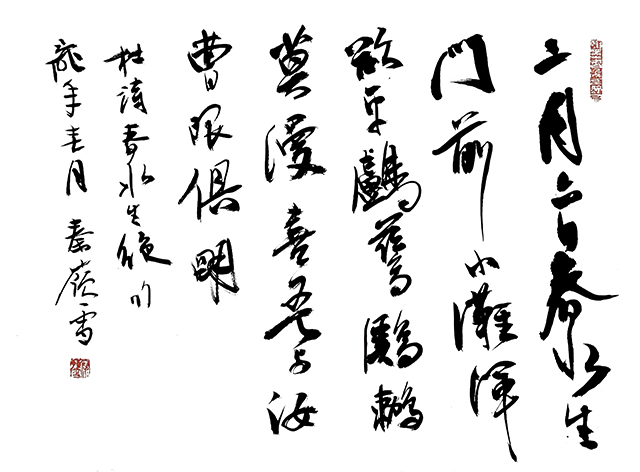 二月六日春水生
門前小灘渾
欲平鸕鶿鸂鶒
莫漫喜吾与汝
曹眼俱明
杜詩春水生絶句
龍年春月 秦嶺雪